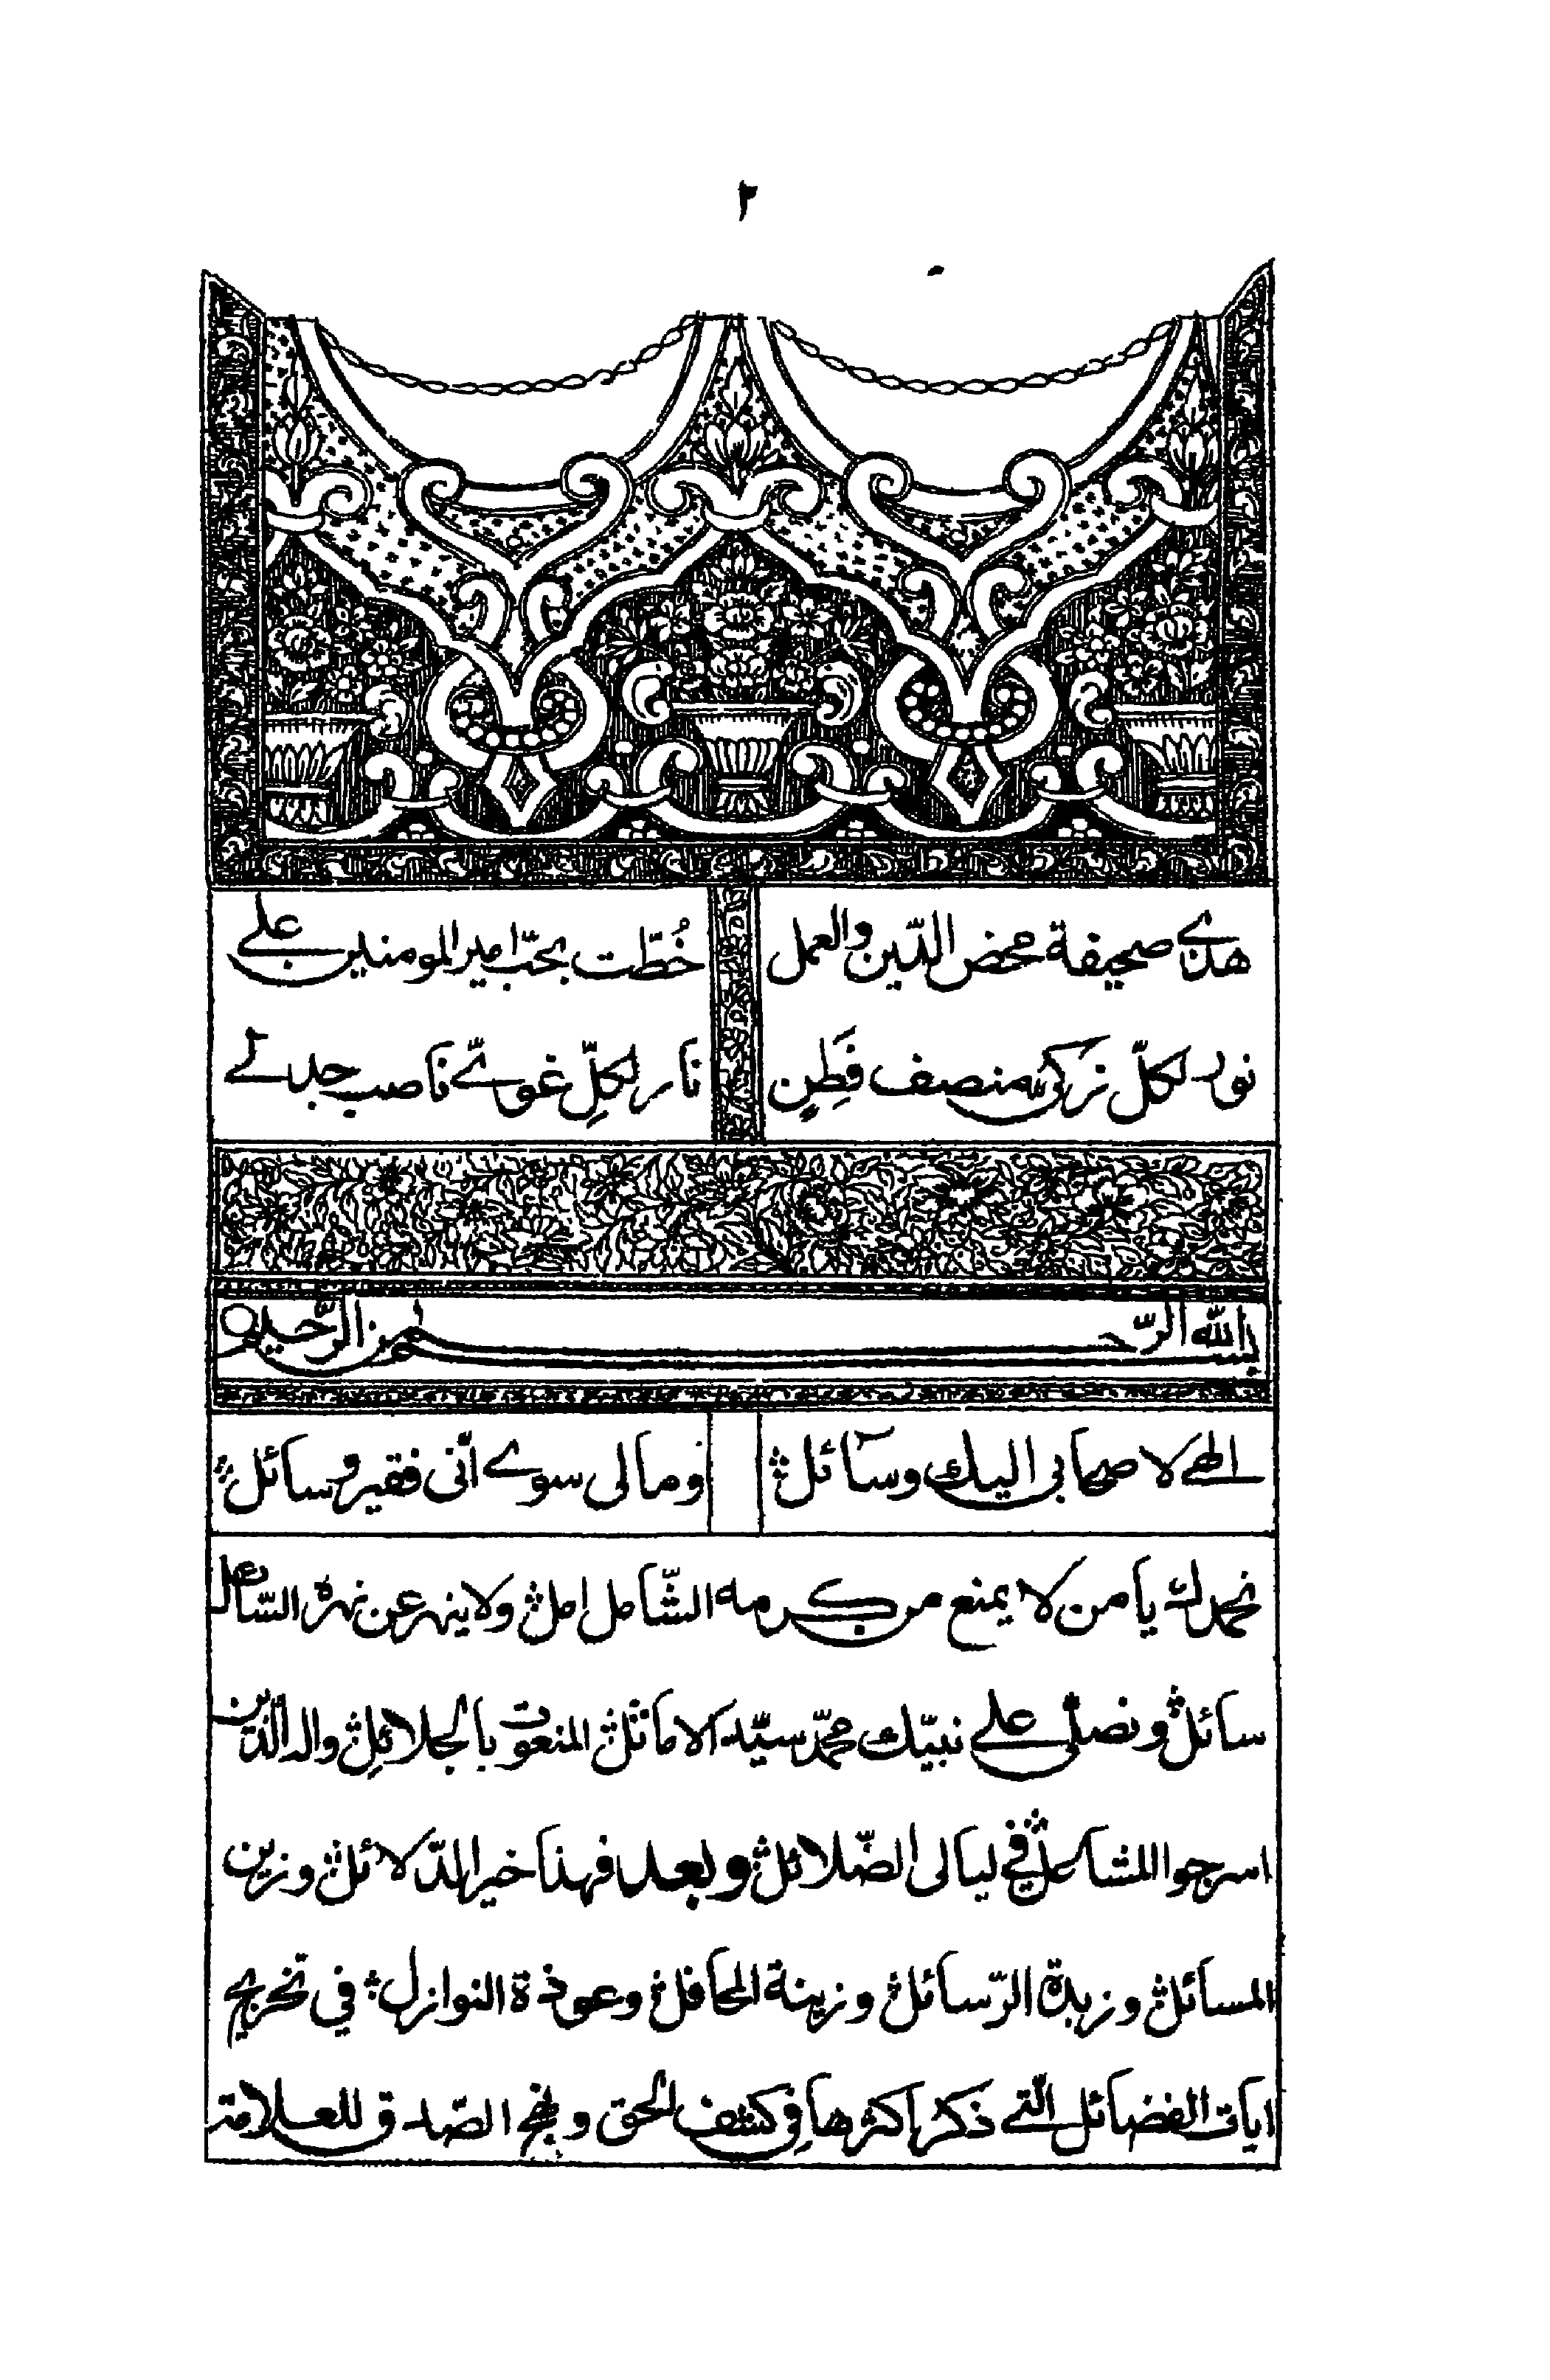 ٢
هذي صحيفة محض الدّين والعمل خُطّت بحبّ امير المومنين علي
نور لكلّ زكي منصف فَطِنٍ نار لكلِّ غويّ ناصب جدلي
بسم الله الرّحمن الرّحيم
الهي لا صحابي اليك وسآئل ومالي سوے انّى فقير وسائل
نحمدك يا من لا يمنع من كرمه الشّامل امل ولا ينهر عن نهره السّائل
سائل ونصلّى على نبيّك محمّد سيّد الاماثل المنعوت بالجلائلِ واله الّذين
اسرجوا المشاعل في ليالى الضّلائل وبعد فهذا خير الدّلائل وزين
المسائل وزبدة الرّسائل وزينة المحافل وعوذة النوازل في تخريج
ايات الفضائل الّتي ذكر اكثرها في كشف الحق ونهج الصّدق للعلامة